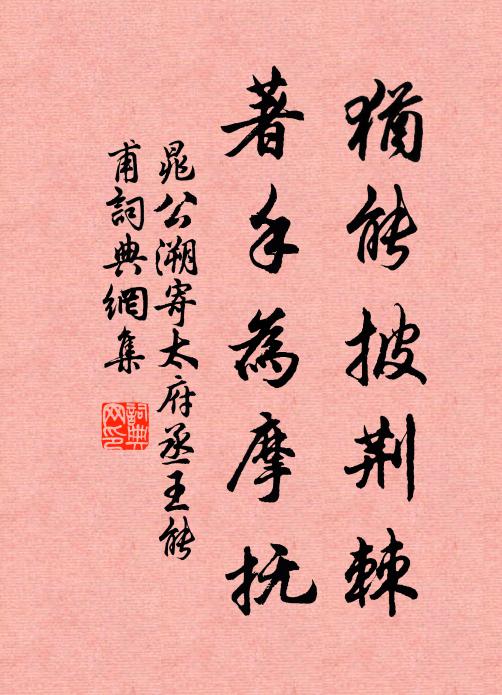 猶能披荆棘
著手為摩抚
晁公溯寄太府丞王能
甫詞典網集
詞典
网印